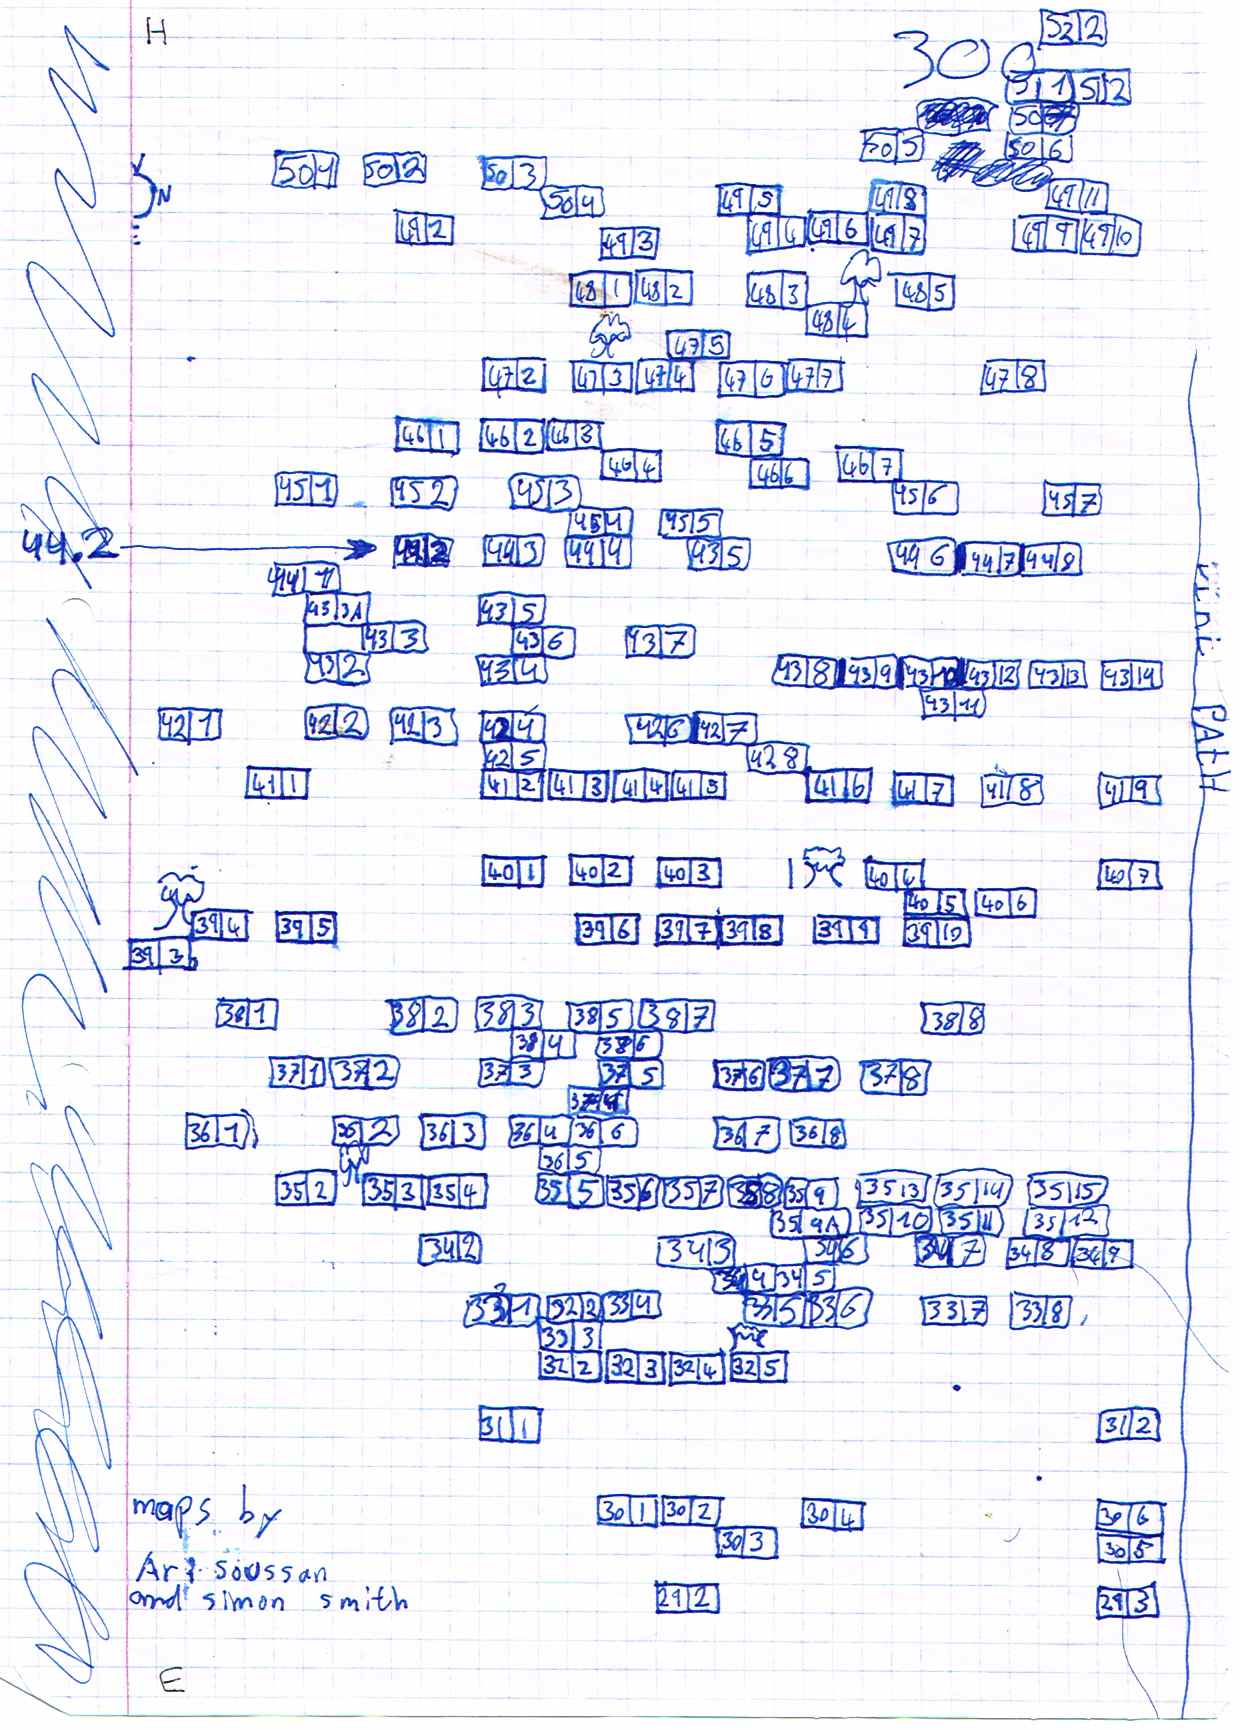 H
300
52|2
51|1 51|2
50|5 50|6
50|1 50|2 50|3
50|4
49|5 49|8 49|11
49|2 49|3 49|4 49|6 49|7 49|9 49|10
N
48|1 48|2 48|3 48|5
48|4
47|5
47|2 47|3 47|4 47|6 47|7 47|8
46|1 46|2 46|3 46|5
46|4 46|6 46|7
45|1 45|2 45|3 45|6 45|7
45|4 45|5
44.2 44|2 44|3 44|4 43|5 44|6 44|7 44|8
44|1
43|3A 43|5
43|3 43|6 43|7
43|2 43|4 43|8 43|9 43|10 43|12 43|13 43|14
43|11
PATH
42|1 42|2 42|3 42|4 42|6 42|7
42|5 42|8
41|1 41|2 41|3 41|4 41|5 41|6 41|7 41|8 41|9
40|1 40|2 40|3 40|4 40|7
40|5 40|6
39|4 39|5 39|6 39|7 39|8 39|9 39|10
39|3
38|1 38|2 38|3 38|5 38|7 38|8
38|4 38|6
37|1 37|2 37|3 37|5 37|6 37|7 37|8
37|4
36|1 36|2 36|3 36|4 36|6 36|7 36|8
36|5
35|2 35|3 35|4 35|5 35|6 35|7 35|8 35|9 35|13 35|14 35|15
35|9A 35|10 35|11 35|12
34|2 34|3 34|6 34|7 34|8 34|9
34|4 34|5
33|1 32|2 33|4 33|5 33|6 33|7 33|8
33|3
32|2 32|3 32|4 32|5
31|1 31|2
maps by 30|1 30|2 30|4 30|6
30|3 30|5
Ari Soussan
and simon smith 29|2 29|3
E